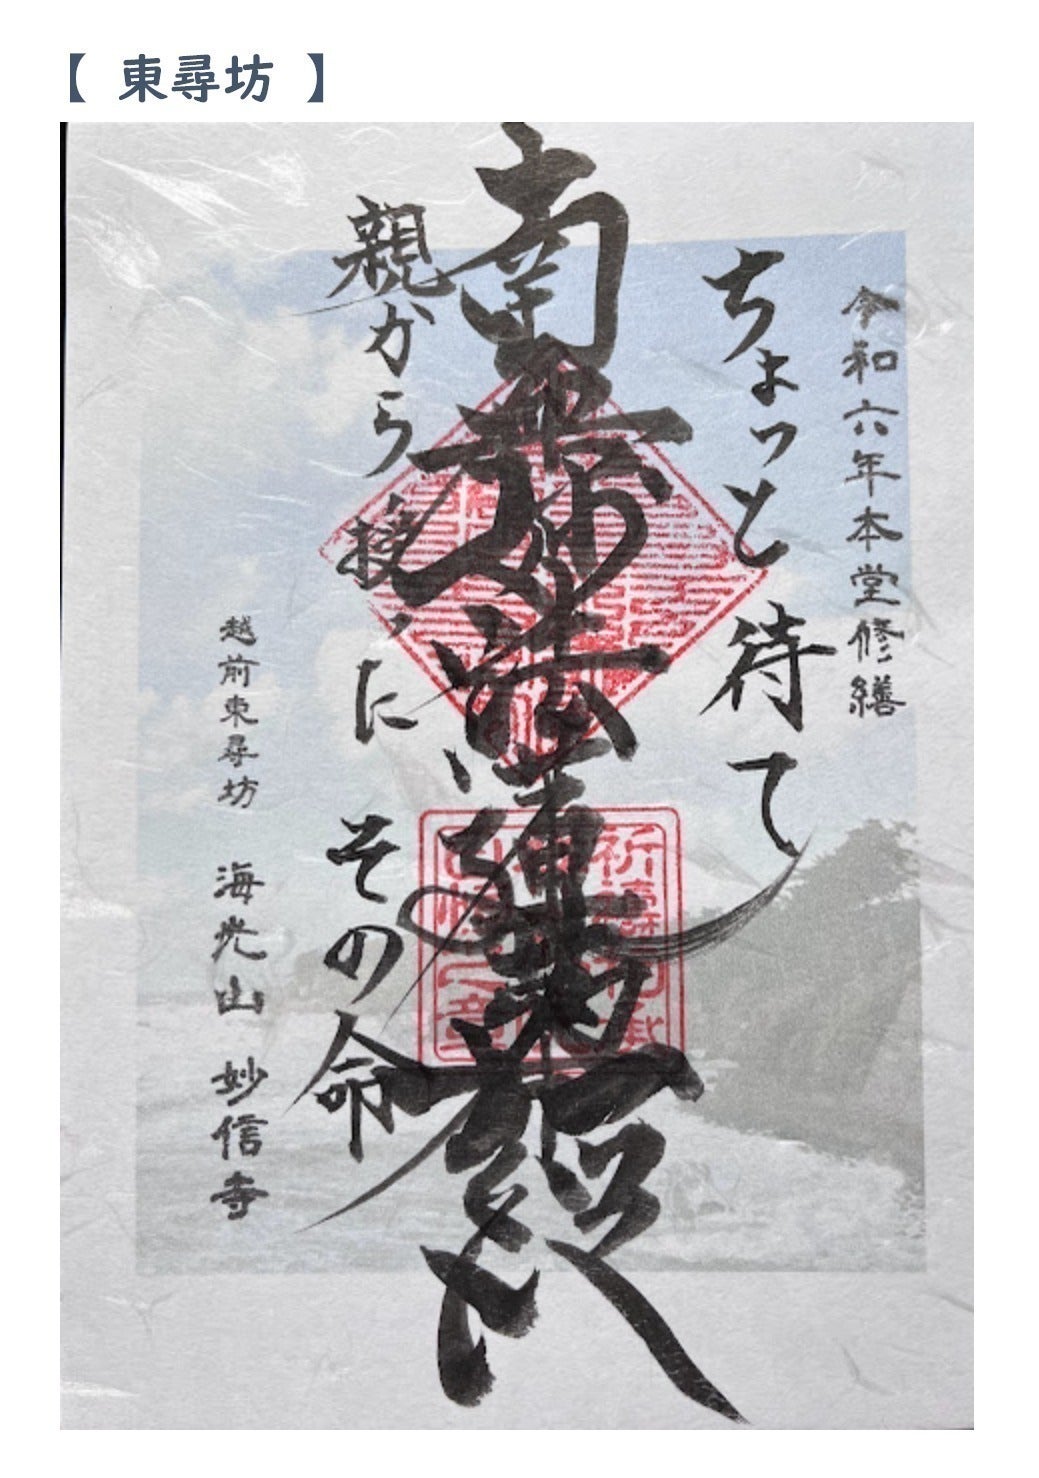 【 東尋坊 】
令和六年本堂修繕
ちょっと待て
南無妙法蓮華経
親から授った その命
越前東尋坊 海光山 妙信寺